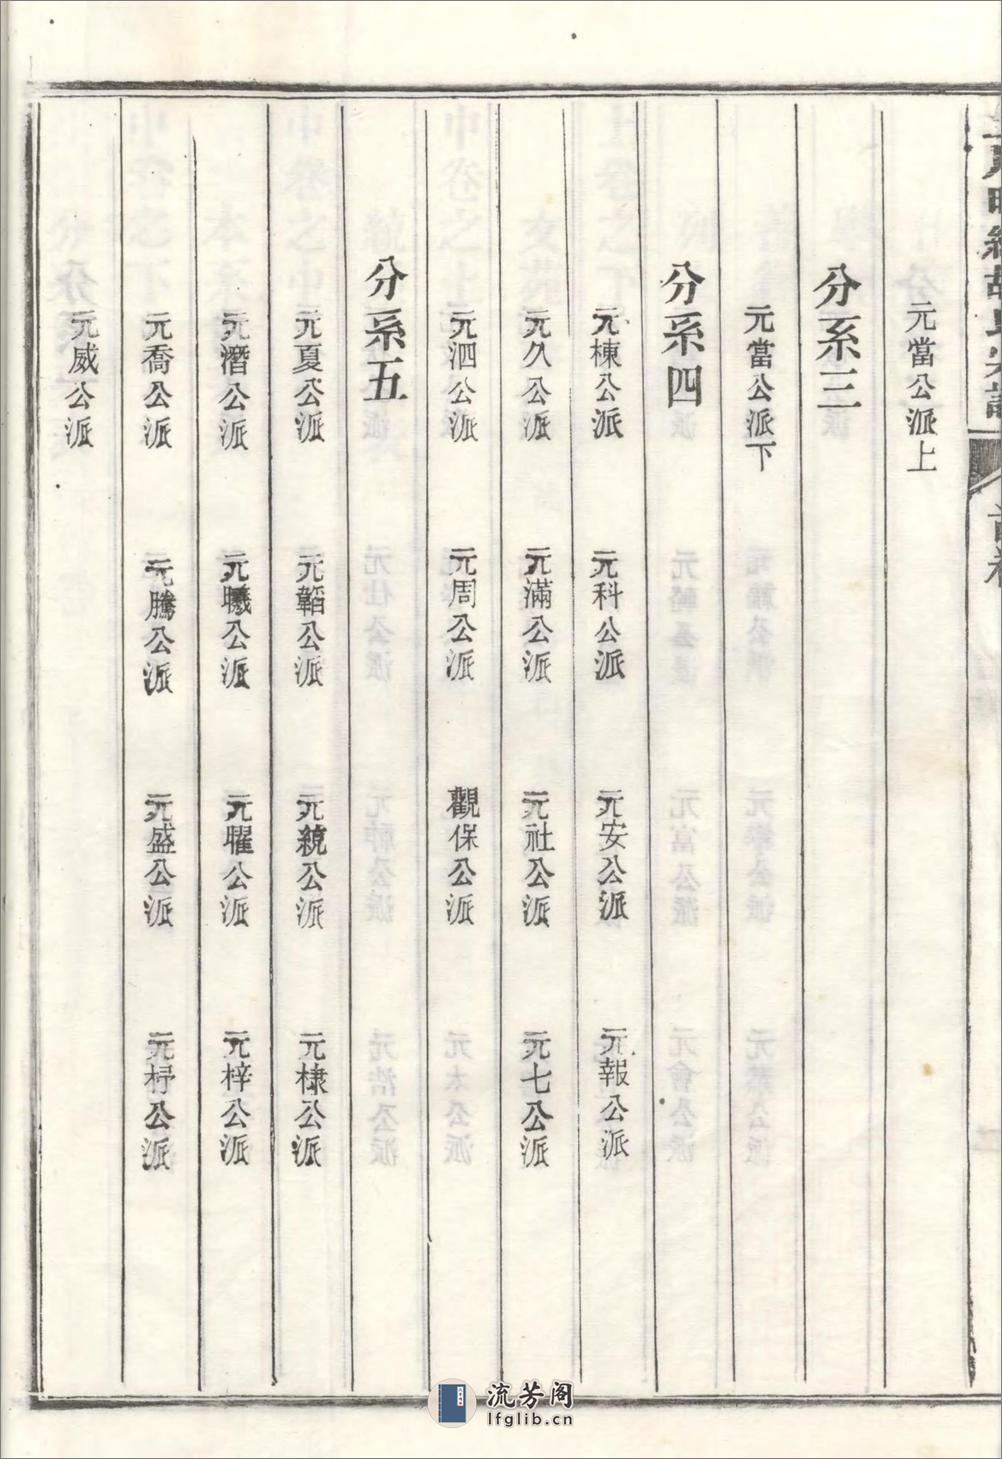 首卷
元當公派上
分系三
元當公派下
分系四
元棟公派 元科公派 元安公派 元報公派
元久公派 元滿公派 元社公派 元七公派
元泗公派 元周公派 觀保公派
分系五
元夏公派 元韜公派 元統公派 元棣公派
元潛公派 元曦公派 元曜公派 元梓公派
元喬公派 元騰公派 元盛公派 元杼公派
元威公派
流芳阁
lfglib.cn